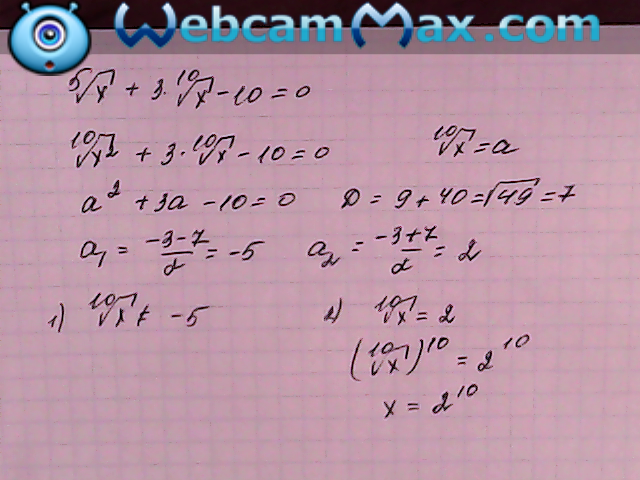 WebcamMax.com
⁵√x + 3·¹⁰√x - 10 = 0
¹⁰√x² + 3·¹⁰√x - 10 = 0   ¹⁰√x = a
a² + 3a - 10 = 0   D = 9 + 40 = √49 = 7
a₁ = (-3-7)/2 = -5   a₂ = (-3+7)/2 = 2
1) ¹⁰√x ≠ -5   2) ¹⁰√x = 2
(¹⁰√x)¹⁰ = 2¹⁰
x = 2¹⁰